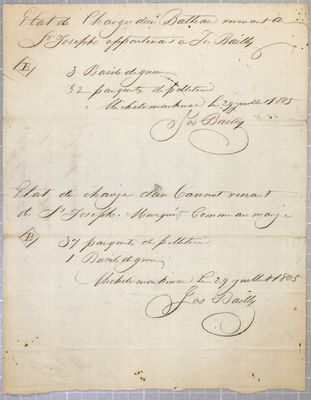 Etat de Charge d'un Batteau venant à
St Joseph appartenant à Jos Bailly
3 Barils de grin
32 paquets de pelleterie
Michilimackinac le 29 juillet 1805
Jos Bailly
Etat de charge d'un Cannot venant
de St Joseph. Marqué Comme au marge
37 paquets de pelleterie
1 Baril de grin
Michilimackinac le 29 juillet 1805
Jos Bailly